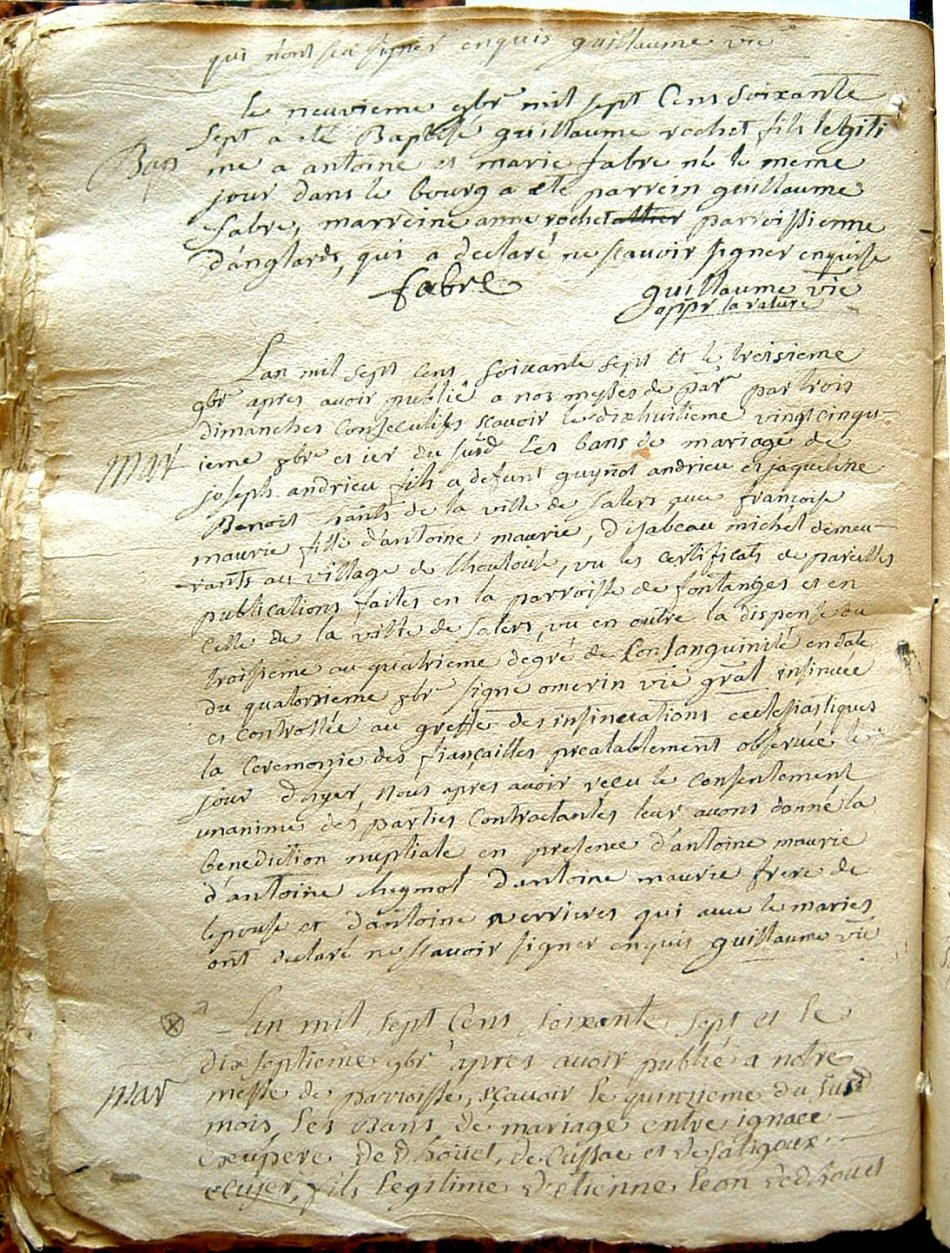 qui n'ont sçu signer enquis guillaume vié
Le neuvieme 9bre mil sept Cens Soixante
Sept a eté Baptisé guillaume rochet fils legiti
Bap
me a antoine et marie fabre né le meme
jour dans le bourg a eté parrein guillaume
fabre, marreine anne rochet parroissienne
d'anglards, qui a declaré ne scavoir signer enquise
fabre guillaume vié
appr la rature
L'an mil sept Cens Soixante sept et le troisieme
9bre apres avoir publié a nos messes de parr par trois
dimanches Consecutifs scavoir le dixhuitieme vingt cinqu-
Mar
ieme 8bre et 1er du susd Les bans de mariage de
joseph andrieu fils a defunt guynot andrieu et jaqueline
Benoit hants de la ville de Salers, avec françoise
maurie fille d'antoine maurie, d'isabeau michel demeu-
rants au village de, vu les certificats de pareilles
publications faites en la parroisse de fontanges et en
celle de la ville de Salers, vu en outre la dispense du
troisieme au quatrieme degré de Consanguinité en date
du quatorsieme 8bre signé omerin vic gral insinuée
et controllée au greffe des insinuations ecclesiastiques
la Ceremonie des fiançailles prealablement observée le
jour d'hyer, Nous apres avoir reçu le Consentement
unanime des parties Contractantes leur avons donné la
benediction nuptiale en presence d'antoine maurie
d'antoine Cheymol d'antoine maurie frere de
lepouse et d'antoine verrieres qui avec le mariés
ont declaré ne scavoir signer enquis guillaume vié
L'an mil sept Cens Soixante sept et le
dixseptieme 9bre apres avoir publié a notre
Mar
messe de parroisse, scavoir le quinzieme du susd
mois, Les Bans de mariage entre ignace
Exupere De Dhouet, de Cussac et de
ecuyer, fils legitime d'etienne Leon de dhouet